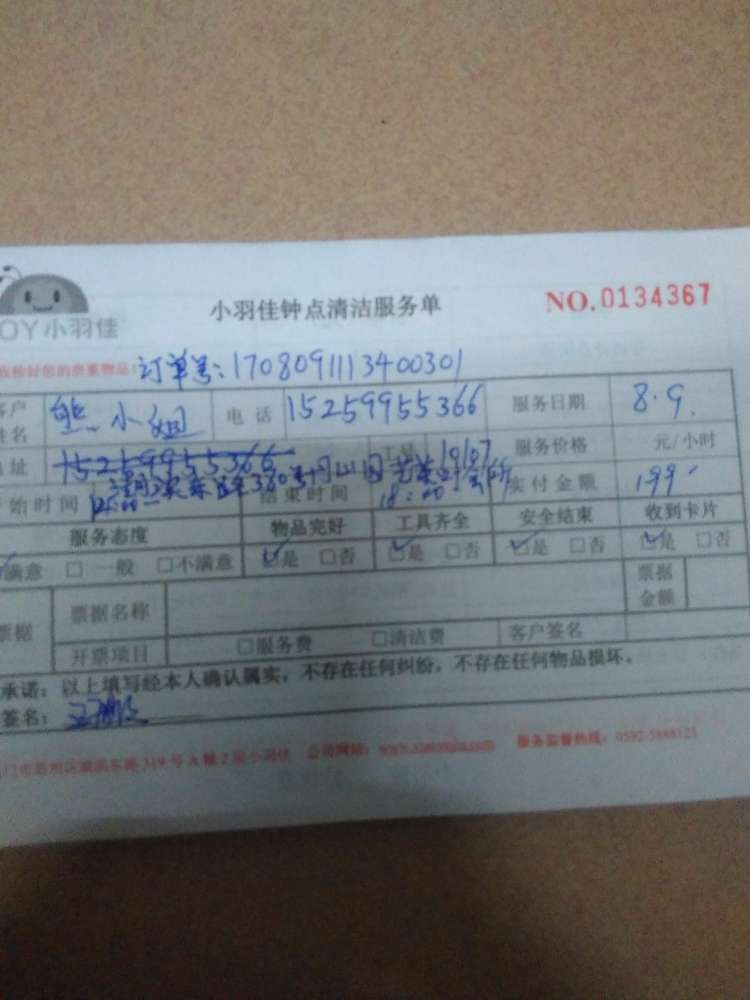 小羽佳钟点清洁服务单 NO.0134367
OY小羽佳
好您的贵重物品! 订单号:1708091113400301
客户姓名 熊小姐 电话 15259955366 服务日期 8.9.
址 15259955366 工号 19107 服务价格 元/小时
始时间 结束时间 18:00 实付金额 199
服务态度 物品完好 工具齐全 安全结束 收到卡片
满意 □ 一般 □不满意 ☑是 □否 ☑是 □否 ☑是 □否 ☑是 □否
票据 票据名称 票据金额
开票项目 □服务费 □清洁费 客户签名
承诺:以上填写经本人确认属实,不存在任何纠纷,不存在任何物品损坏。
签名:
门市思明区湖滨东路319号A幢2层小羽佳 公司网站: 服务监督热线: